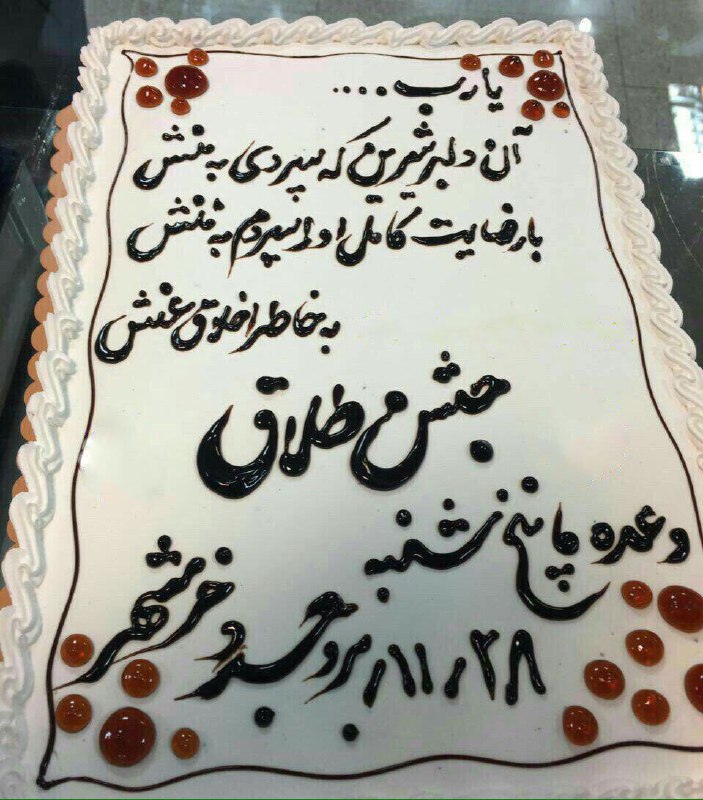 یارب ....
آن دلبر شیرین که سپردی به منش
با رضایت کامل او را سپردم به ننش
به خاطر اخلاق عنش
جشن طلاق
وعده ما پنج شنبه
۲۸ / ۱۱ /
خرمشهر